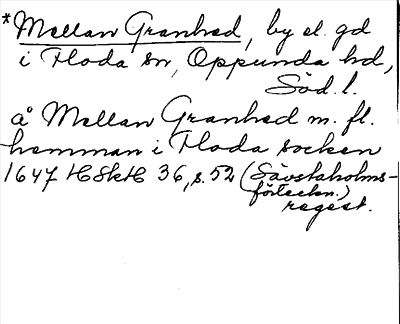 *Mellan Granhed, by el. gd
i Floda sn, Oppunda hd,
Söd. l.
å Mellan Granhed m. fl.
hemman i Floda socken
1647 HSkH 36, s. 52 (Sävstaholms-
förteckn.)
regest.